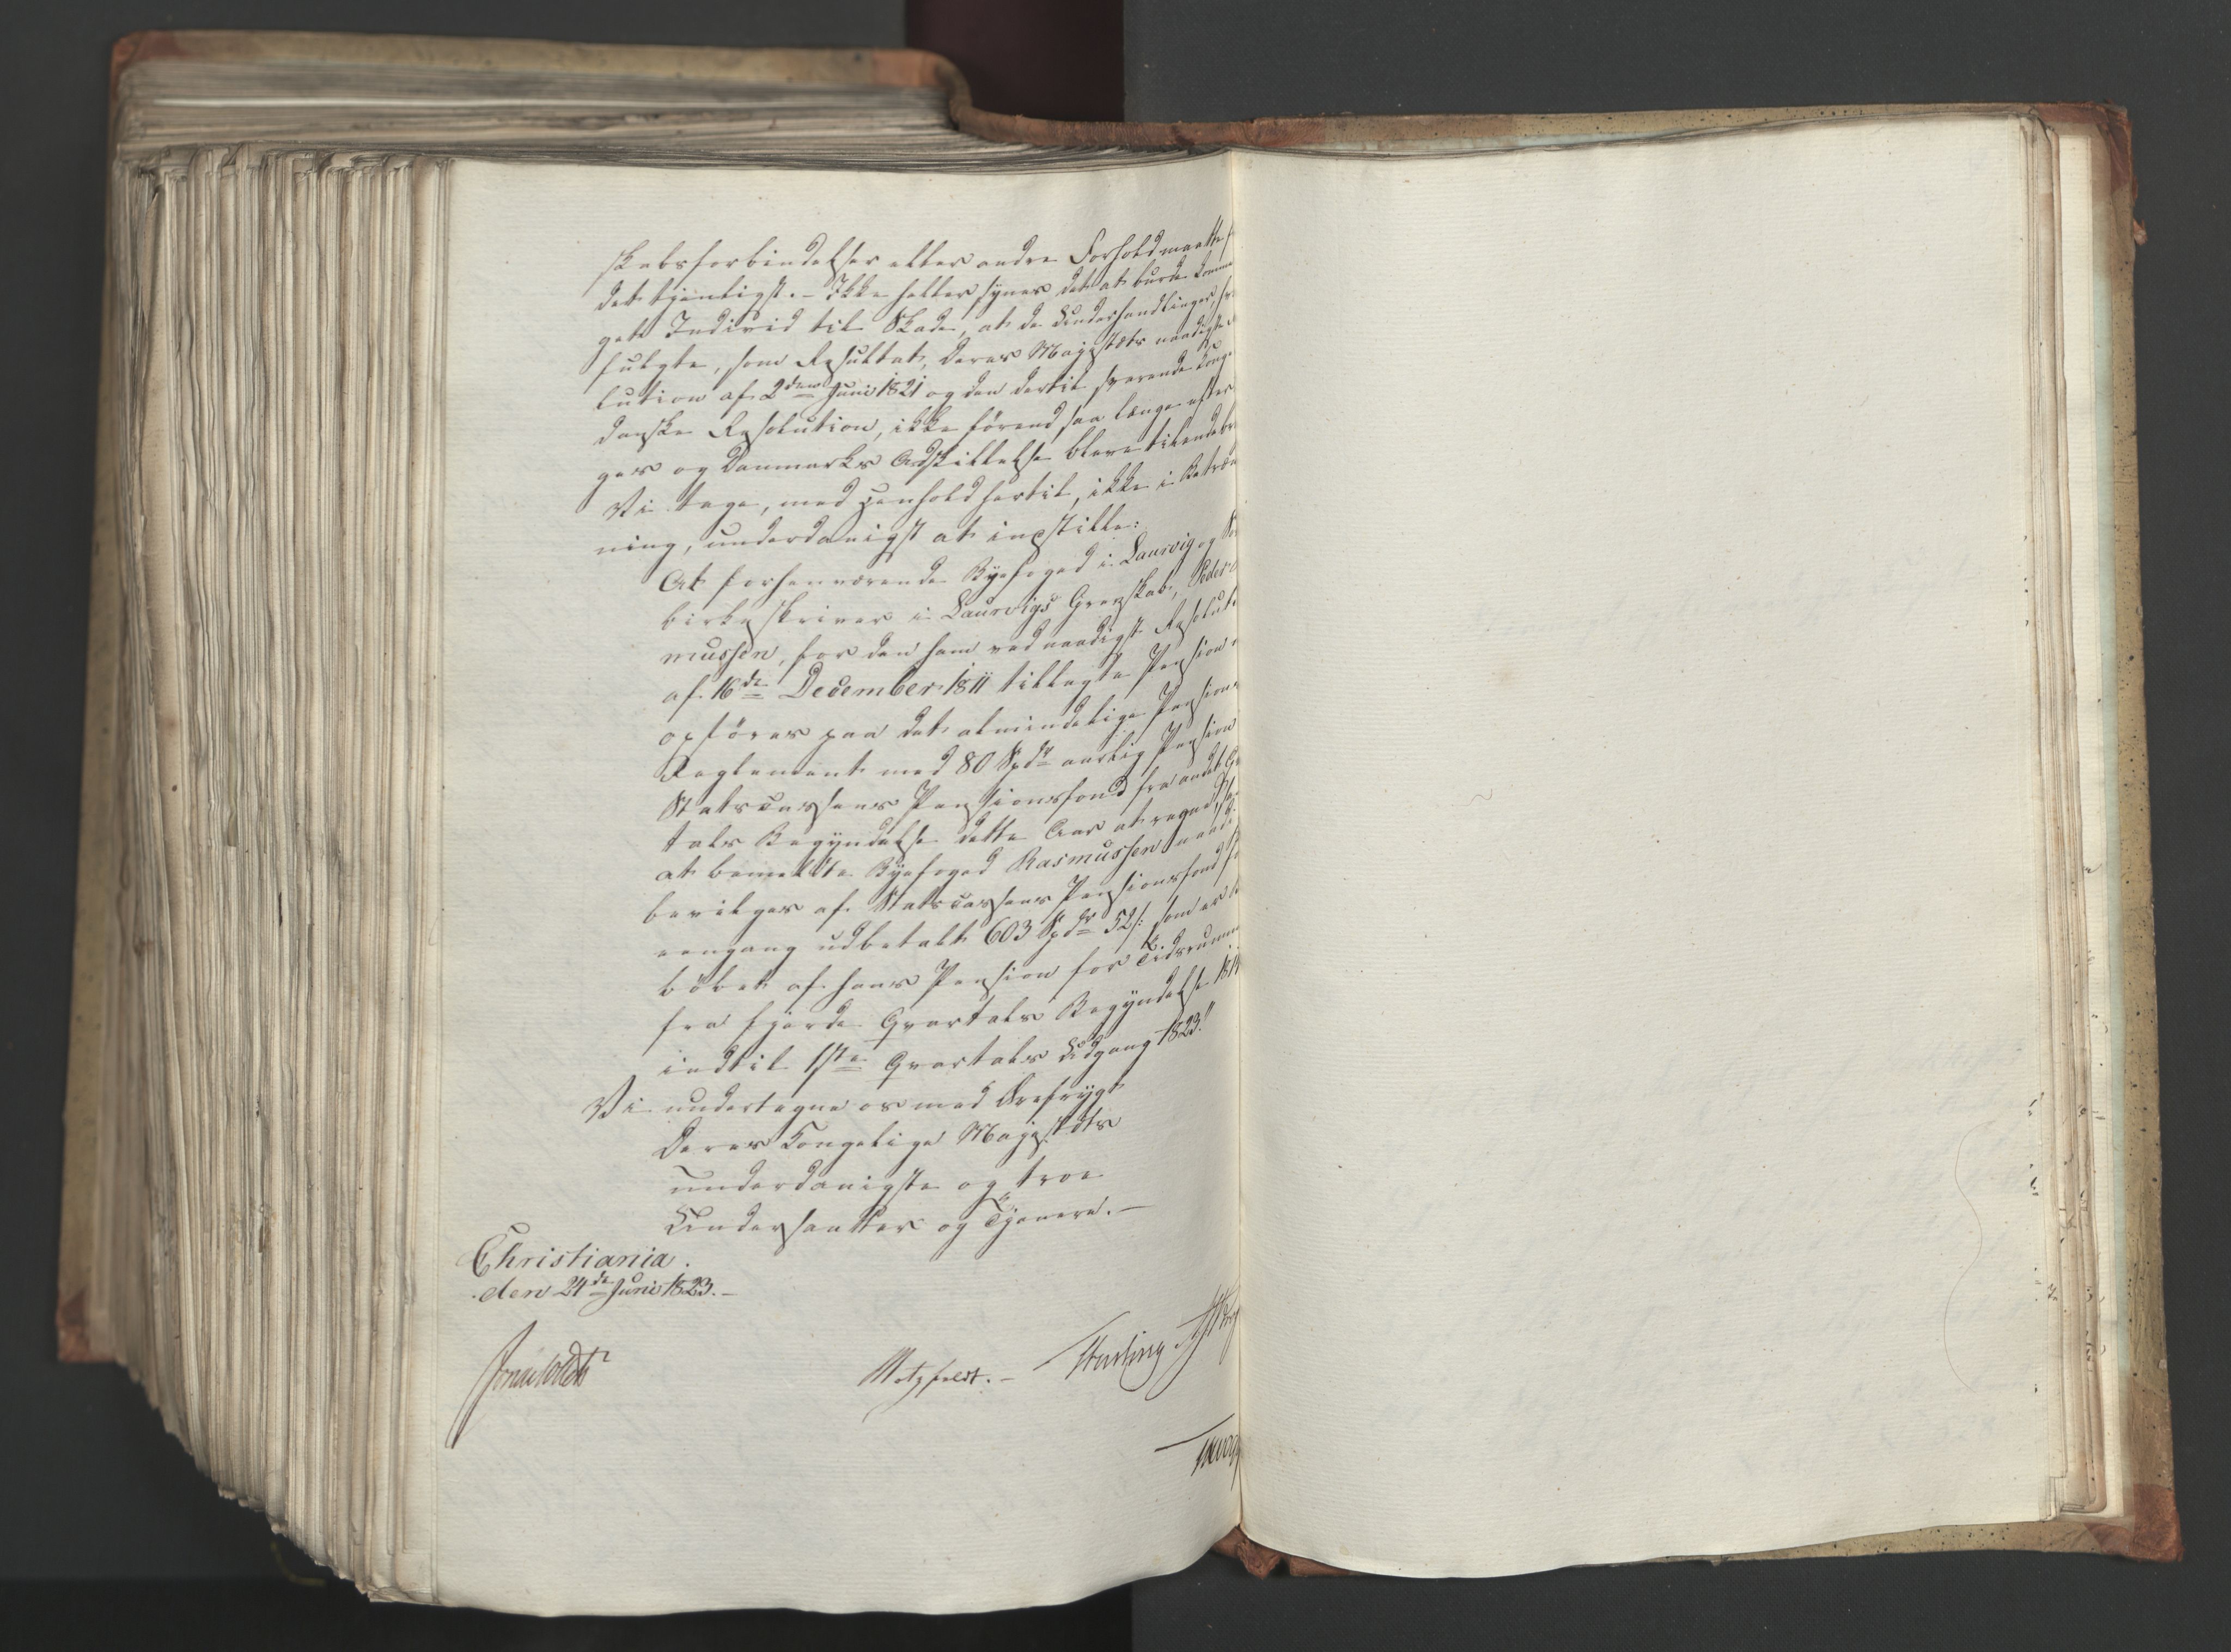 skabsforbindelser eller andre Forhold maatte
det tjenligst. – Ikke heller synes det at burde komme
get Individ til Skade, at de Underhandlinger,
fulgte, som Resultat, Deres Majestæts naadigste
lution af 2den Juni 1821 og den dertil svarende Konge
danske Resolution, ikke førend saa længe efter
ges og Danmarks Adskillelse bleve tilendebr
Vi tage, med Henhold hertil, ikke i Betæn
ning, underdanigst at indstille:
At forhenværende Byefoged i Laurvig og
birkeskriver i Laurvigs Grevskab, Peder
mussen, for den ham ved naadigst Resoluti
af 16de December 1811 tillagte Pension
opføres paa det almindelige Pensions
Reglement med 80 Spdr aarlig Pension
Statscassens Pensionsfond fra andet
tals Begyndelse dette Aar at regne,
at bemeldte Byefoged Rasmussen naadi
bevilges af Statscassens Pensionsfond
eengang udbetalt 603 Spdr 52 s. som er
løbet af hans Pension for Tidsrumm
fra fjerde Qvartals Begyndelse 181
indtil 1ste Qvartals Udgang 1823."
Vi undertegne os med Ærefrygt
Deres Kongelige Majestæts
underdanigste og troe
Undersaatter og Tjenere. –
Christiania.
den 24de Juni 1823. –
Motzfeldt. –